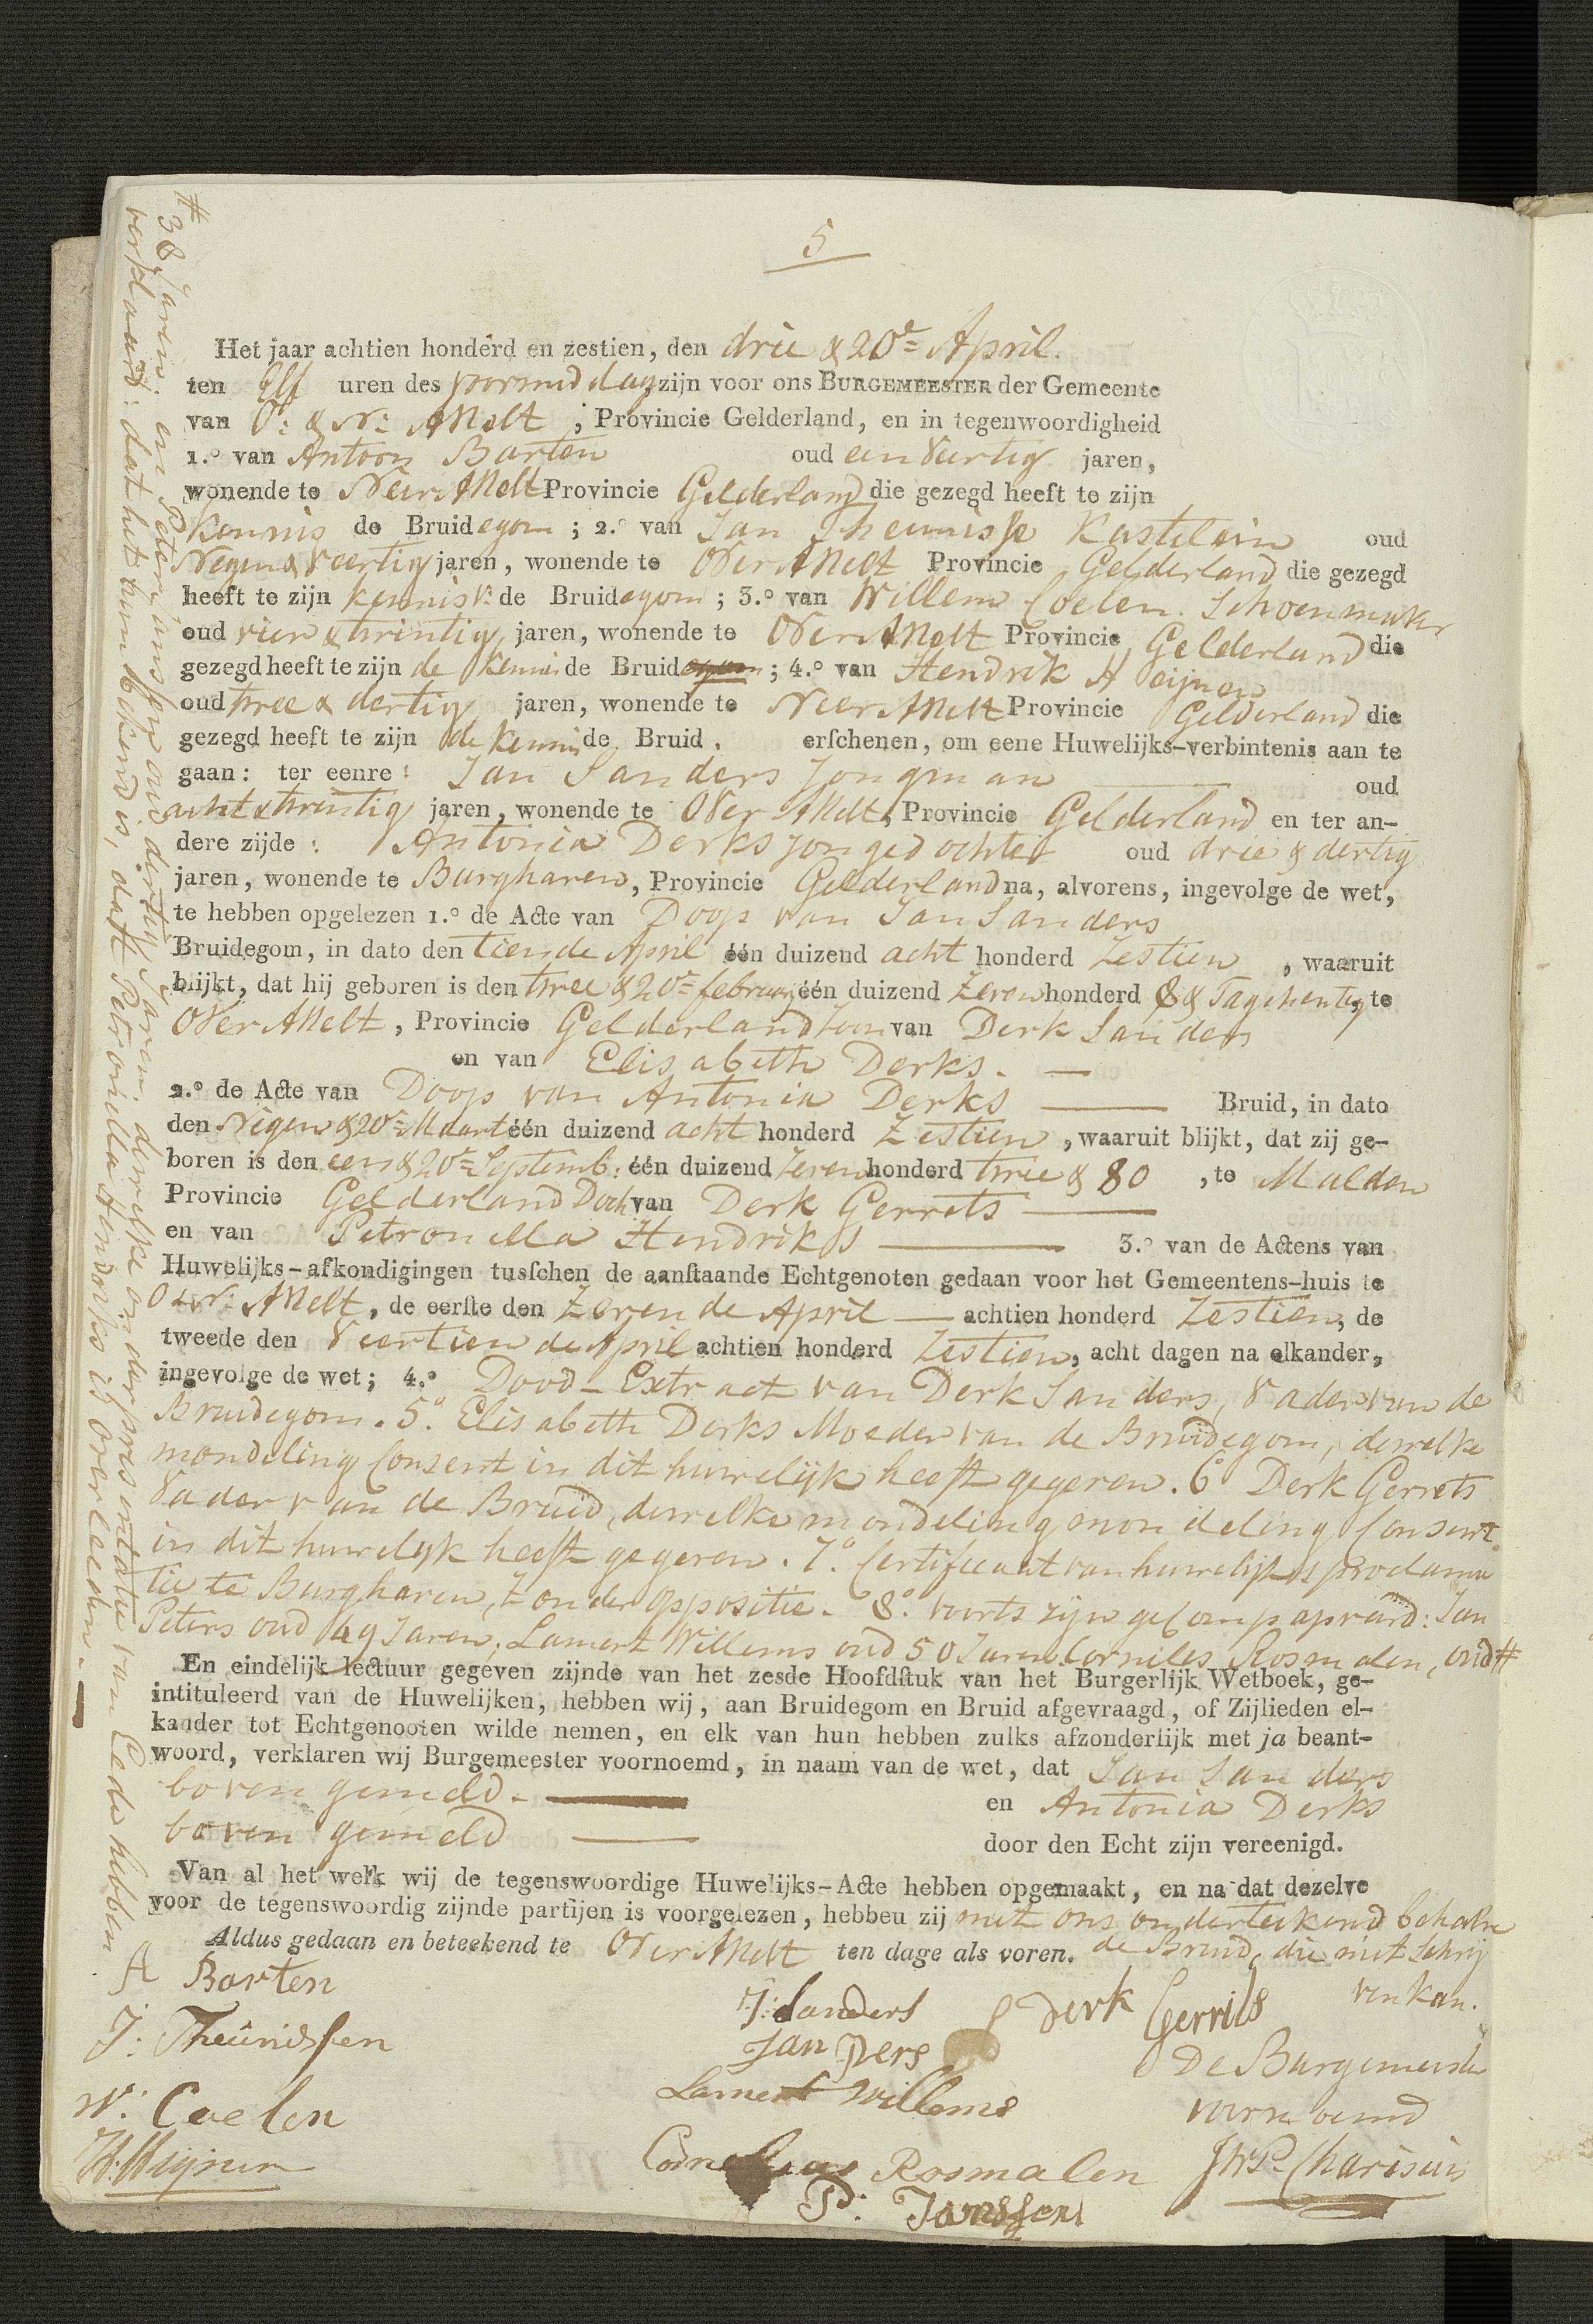 5
Het jaar achtien honderd en zestien, den drie & 20e April.
ten Elf uren des voormiddag zijn voor ons BURGEMEESTER der Gemeente
van O: & N: Asselt, Provincie Gelderland, en in tegenwoordigheid
1.o van Antoon Barten oud een Veertig jaren,
wonende te Neer Asselt Provincie Gelderland die gezegd heeft te zijn
Kennis de Bruidegom; 2.o van Jan Theunisse Kastelein oud
Negen & Veertig jaren, wonende te Over Asselt Provincie Gelderland die gezegd
heeft te zijn kennis v: de Bruidegom; 3.o van Willem Coelen. Schoenmaker
oud vier & twintig jaren, wonende te Over Asselt Provincie Gelderland die
gezegd heeft te zijn de Kennis de Bruidegom; 4.o van Hendrik Heijnen
oud twee & dertig jaren, wonende te Neer Asselt Provincie Gelderland die
gezegd heeft te zijn de Kennis de Bruid. erſchenen, om eene Huwelijks-verbintenis aan te
gaan: ter eenre: Jan Sanders Jongman oud
acht & twintig jaren, wonende te Over Asselt, Provincie Gelderland en ter an-
dere zijde: Antonia Derks jongedochter oud drie & dertig
jaren, wonende te Burgharen, Provincie Gelderland na, alvorens, ingevolge de wet,
te hebben opgelezen 1.o de Acte van Doop van Jan Sanders
Bruidegom, in dato den tiende April één duizend acht honderd Zestien, waaruit
blijkt, dat hij geboren is den twee & 20e february één duizend Zeven honderd 8 & Tagchentig, te
Over Asselt, Provincie Gelderland Zoon van Derk Sanders
en van Elisabeth Derks. —
2.o de Acte van Doop van Antonia Derks — Bruid, in dato
den Negen & 20e Maart één duizend acht honderd Zestien, waaruit blijkt, dat zij ge-
boren is den een & 20e Septemb: één duizend Zeven honderd twee & 80, te Malden
Provincie Gelderland Doch van Derk Gerrets —
en van Petronella Hendriks — 3.o van de Actens van
Huwelijks-afkondigingen tusſchen de aanſtaande Echtgenoten gedaan voor het Gemeentens-huis te
O & N: Asselt, de eerſte den Zevende April — achtien honderd Zestien, de
tweede den Veertiende April achtien honderd Zestien, acht dagen na elkander,
ingevolge de wet; 4.o Dood-Extract van Derk Sanders, Vader van de
Bruidegom. 5.o Elisabeth Derks Moeder van de Bruidegom, dewelke
mondeling Consent in dit huwelijk heeft gegeven. 6o Derk Gerrets
Vader van de Bruid, dewelke mondeling mondeling Consent
in dit huwelyk heeft gegeven. 7.o Certificaat van huwelijks proclama
tie te Burgharen, Zonder oppositie. 8.o voorts zijn gecompapraid: Jan
Peters oud 49 Jaren, Lamert Willems oud 50 Jaren Corniles Rosmalen, oud #
En eindelijk lectuur gegeven zijnde van het zesde Hoofdſtuk van het Burgerlijk Wetboek, ge-
intituleerd van de Huwelijken, hebben wij, aan Bruidegom en Bruid afgevraagd, of Zijlieden el-
kander tot Echtgenooten wilde nemen, en elk van hun hebben zulks afzonderlijk met ja beant-
woord, verklaren wij Burgemeester voornoemd, in naam van de wet, dat Jan Sanders
boven gemeld. — en Antonia Derks
boven gemeld — door den Echt zijn vereenigd.
Van al het welk wij de tegenswoordige Huwelijks-Acte hebben opgemaakt, en na dat dezelve
voor de tegenswoordig zijnde partijen is voorgelezen, hebben zij met ons onderteekend behalve
Aldus gedaan en beteekend te Over Asselt ten dage als voren. de Bruid, die niet Schrij
ven kan.
A Barten
J. Theunissen
W. Coelen
H. Heijnen
J: Sanders
Jan Peters
Lamert Willems
Cornelius Rosmalen
P: Janssen
Derk Gerrits
De Burgemeester
voornoemd
# 38 Jaren. en Peter Janssen oud dertig Jaren. dewelke onder presentatie van Eede hebben
verklaard: dat het hun bekend is, dat Petronella Hendriks is overleeden. —